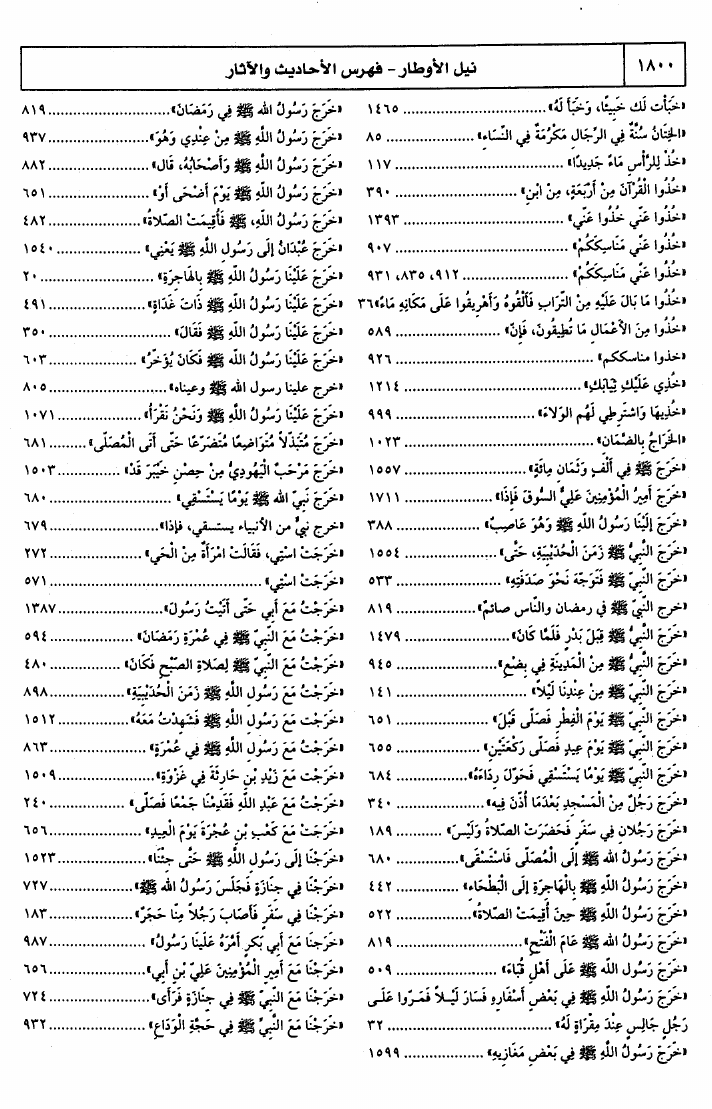 ١٨٠٠
نيل الأوطار - فهرس الأحاديث والآثار
«خَبَأْت لَك خَبِيئًا، وَخَبَأَ لَهُ» ١٤٦٥
«الخِتَانُ سُنَّةٌ فِي الرِّجَالِ مَكْرُمَةٌ فِي النِّسَاءِ» ٨٥
«خُذْ لِلرَّأْسِ مَاءً جَدِيدًا» ١١٧
«خُذُوا الْقُرْآنَ مِنْ أَرْبَعَةٍ، مِنِ ابْنِ» ٣٩٠
«خُذُوا عَنِّي خُذُوا عَنِّي» ١٣٩٣
«خُذُوا عَنِّي مَنَاسِكَكُمْ» ٩٠٧
«خُذُوا عَنِّي مَنَاسِكَكُمْ» ٩١٢، ٨٣٥، ٩٣١
«خُذُوا مَا بَالَ عَلَيْهِ مِنَ التُّرَابِ فَأَلْقُوهُ وَأَهْرِيقُوا عَلَى مَكَانِهِ مَاءً» ٣٦
«خُذُوا مِنَ الأَعْمَالِ مَا تُطِيقُونَ، فَإِنَّ» ٥٨٩
«خذوا مناسككم» ٩٢٦
«خُذِي عَلَيْكِ ثِيَابَكِ» ١٢١٤
«خُذِيهَا وَاشْتَرِطِي لَهُم الْوَلَاءَ» ٩٩٩
«الخَرَاجُ بِالضَّمَانِ» ١٠٢٣
«خَرَجَ ﷺ فِي أَلْفٍ وَثَمَانِ مِائَةٍ» ١٥٥٧
«خَرَجَ أَمِيرُ الْمُؤْمِنِينَ عَلِيٌّ السُّوقَ فَإِذَا» ١٧١١
«خَرَجَ إِلَيْنَا رَسُولُ اللَّهِ ﷺ وَهُوَ عَاصِبٌ» ٣٨٨
«خَرَجَ النَّبِيُّ ﷺ زَمَنَ الْحُدَيْبِيَةِ، حَتَّى» ١٥٥٤
«خَرَجَ النَّبِيُّ ﷺ فَتَوَجَّهَ نَحْوَ صَدَقَتِهِ» ٥٣٣
«خرج النَّبِيُّ ﷺ في رمضان والنَّاس صائمٌ» ٨١٩
«خَرَجَ النَّبِيُّ ﷺ قِبَلَ بَدْرٍ فَلَمَّا كَانَ» ١٤٧٩
«خَرَجَ النَّبِيُّ ﷺ مِنْ الْمَدِينَةِ فِي بِضْعِ» ٩٤٥
«خَرَجَ النَّبِيُّ ﷺ مِنْ عِنْدِنَا لَيْلًا» ١٤١
«خَرَجَ النَّبِيُّ ﷺ يَوْمَ الْفِطْرِ فَصَلَّى قَبْلَ» ٦٥١
«خَرَجَ النَّبِيُّ ﷺ يَوْمَ عِيدٍ فَصَلَّى رَكْعَتَيْنِ» ٦٥٥
«خَرَجَ النَّبِيُّ ﷺ يَوْمًا يَسْتَسْقِي فَحَوَّلَ رِدَاءَهُ» ٦٨٤
«خَرَجَ رَجُلٌ مِنْ الْمَسْجِدِ بَعْدَمَا أُذِّنَ فِيهِ» ٣٤٠
«خَرَجَ رَجُلَانِ فِي سَفَرٍ فَحَضَرَتِ الصَّلَاةُ وَلَيْسَ» ١٨٩
«خَرَجَ رَسُولُ الله ﷺ إِلَى الْمُصَلَّى فَاسْتَسْقَى» ٦٨٠
«خَرَجَ رَسُولُ اللَّهِ ﷺ بِالْهَاجِرَةِ إِلَى الْبَطْحَاءِ» ٤٤٢
«خَرَجَ رَسُولُ اللَّهِ ﷺ حِينَ أُقِيمَتِ الصَّلَاةُ» ٥٢٢
«خَرَجَ رَسُولُ الله ﷺ عَامَ الْفَتْحِ» ٨١٩
«خَرَجَ رَسُولُ الله ﷺ عَلَى أَهْلِ قُبَاءَ» ٥٠٩
«خَرَجَ رَسُولُ اللَّهِ ﷺ فِي بَعْضِ أَسْفَارِهِ فَسَارَ لَيْلًا فَمَرُّوا عَلَى
رَجُلٍ جَالِسٍ عِنْدَ مِقْرَاةٍ لَهُ» ٣٢
«خَرَجَ رَسُولُ اللَّهِ ﷺ فِي بَعْضِ مَغَازِيهِ» ١٥٩٩
«خَرَجَ رَسُولُ الله ﷺ فِي رَمَضَانَ» ٨١٩
«خَرَجَ رَسُولُ اللَّهِ ﷺ مِنْ عِنْدِي وَهُوَ» ٩٣٧
«خَرَجَ رَسُولُ اللَّهِ ﷺ وَأَصْحَابُهُ، قَال» ٨٨٢
«خَرَجَ رَسُولُ اللَّهِ ﷺ يَوْمَ أَضْحَى أَوْ» ٦٥١
«خَرَجَ رَسُولُ اللَّهِ، ﷺ فَأُقِيمَتِ الصَّلَاةُ» ٤٨٢
«خَرَجَ عُبْدَانٌ إِلَى رَسُولِ اللَّهِ ﷺ يَعْنِي» ١٥٤٠
«خَرَجَ عَلَيْنَا رَسُولُ اللَّهِ ﷺ بِالهَاجِرَةِ» ٢٠
«خَرَجَ عَلَيْنَا رَسُولُ اللَّهِ ﷺ ذَاتَ غَدَاةٍ» ٤٩١
«خَرَجَ عَلَيْنَا رَسُولُ اللَّهِ ﷺ فَقَالَ» ٣٥٠
«خَرَجَ عَلَيْنَا رَسُولُ الله ﷺ فَكَانَ يُؤَخِّرُ» ٦٠٣
«خرج علينا رسول الله ﷺ وعيناه» ٨٠٥
«خَرَجَ عَلَيْنَا رَسُولُ اللَّهِ ﷺ وَنَحْنُ نَقْرَأُ» ١٠٧١
«خَرَجَ مُتَبَذِّلًا مُتَوَاضِعًا مُتَضَرِّعًا حَتَّى أَتَى الْمُصَلَّى» ٦٨١
«خَرَجَ مَرْحَبٌ الْيَهُودِيُّ مِنْ حِصْنِ خَيْبَرَ قَدْ» ١٥٠٣
«خَرَجَ نَبِيُّ الله ﷺ يَوْمًا يَسْتَسْقِي» ٦٨٠
«خرج نبيٌّ من الأنبياء يستسقي، فإذا» ٦٧٩
«خَرَجَتْ اسْتِي، فَقَالَتْ امْرَأَةٌ مِنْ الْحَيِّ» ٢٧٢
«خَرَجَتْ اسْتِي» ٥٧١
«خَرَجْتُ مَعَ أَبِي حَتَّى أَتَيْتُ رَسُولَ» ١٣٨٧
«خَرَجْتُ مَعَ النَّبِيِّ ﷺ فِي عُمْرَةِ رَمَضَانَ» ٥٩٤
«خَرَجْتُ مَعَ النَّبِيِّ ﷺ لِصَلَاةِ الصُّبْحِ فَكَانَ» ٤٨٠
«خَرَجْتُ مَعَ رَسُولِ اللَّهِ ﷺ زَمَنَ الْحُدَيْبِيَةِ» ٨٩٨
«خَرَجْت مَع رَسُولِ اللَّهِ ﷺ فَشَهِدْتُ مَعَهُ» ١٥١٢
«خَرَجْتُ مَعَ رَسُولِ اللَّهِ ﷺ فِي عُمْرَةٍ» ٨٦٣
«خَرَجْت مَعَ زَيْدِ بْنِ حَارِثَةَ فِي غَزْوَةِ» ١٥٠٩
«خَرَجْتُ مَعَ عَبْدِ اللَّهِ فَقَدِمْنَا جَمْعًا فَصَلَّى» ٢٤٠
«خَرَجْتُ مَعَ كَعْبِ بْنِ عُجْرَةَ يَوْمَ الْعِيدِ» ٦٥٦
«خَرَجْنَا إِلَى رَسُولِ اللَّهِ ﷺ حَتَّى جِئْنَا» ١٥٢٣
«خَرَجْنَا فِي جِنَازَةٍ فَجَلَسَ رَسُولُ الله ﷺ» ٧٢٧
«خَرَجْنَا فِي سَفَرٍ فَأَصَابَ رَجُلًا مِنَّا حَجَرٌ» ١٨٣
«خَرَجْنَا مَعَ أَبِي بَكْرٍ أَمَّرَهُ عَلَيْنَا رَسُولُ» ٩٨٧
«خَرَجْنَا مَعَ أَمِيرِ الْمُؤْمِنِينَ عَلِيِّ بْنِ أَبِي» ٦٥٦
«خَرَجْنَا مَعَ النَّبِيِّ ﷺ فِي جِنَازَةٍ فَرَأَى» ٧٢٤
«خَرَجْنَا مَعَ النَّبِيِّ ﷺ فِي حَجَّةِ الْوَدَاعِ» ٩٣٢